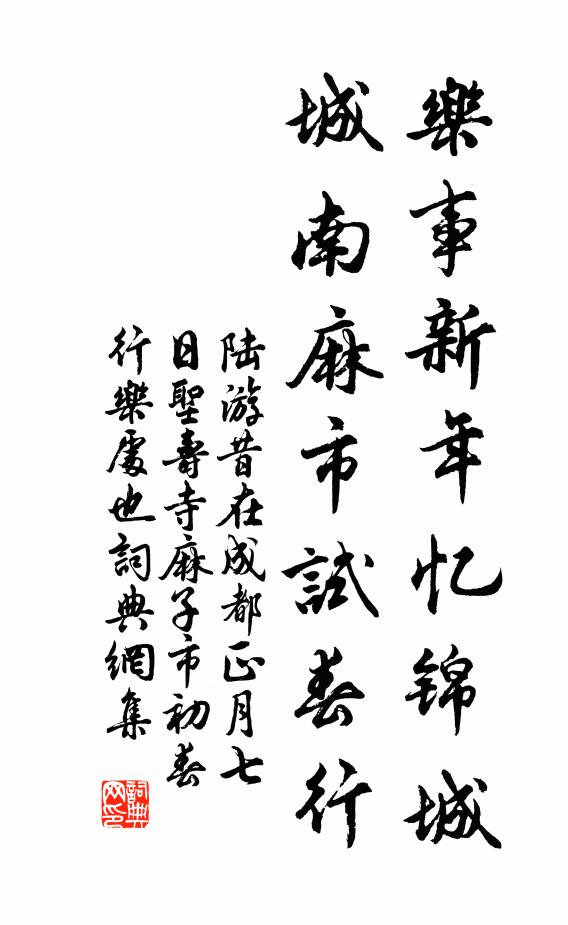 樂事新年忆锦城
城南麻市試春行
陸游昔在成都正月七
日聖壽寺麻子市初春
行樂處也詞典網集
詞典网印